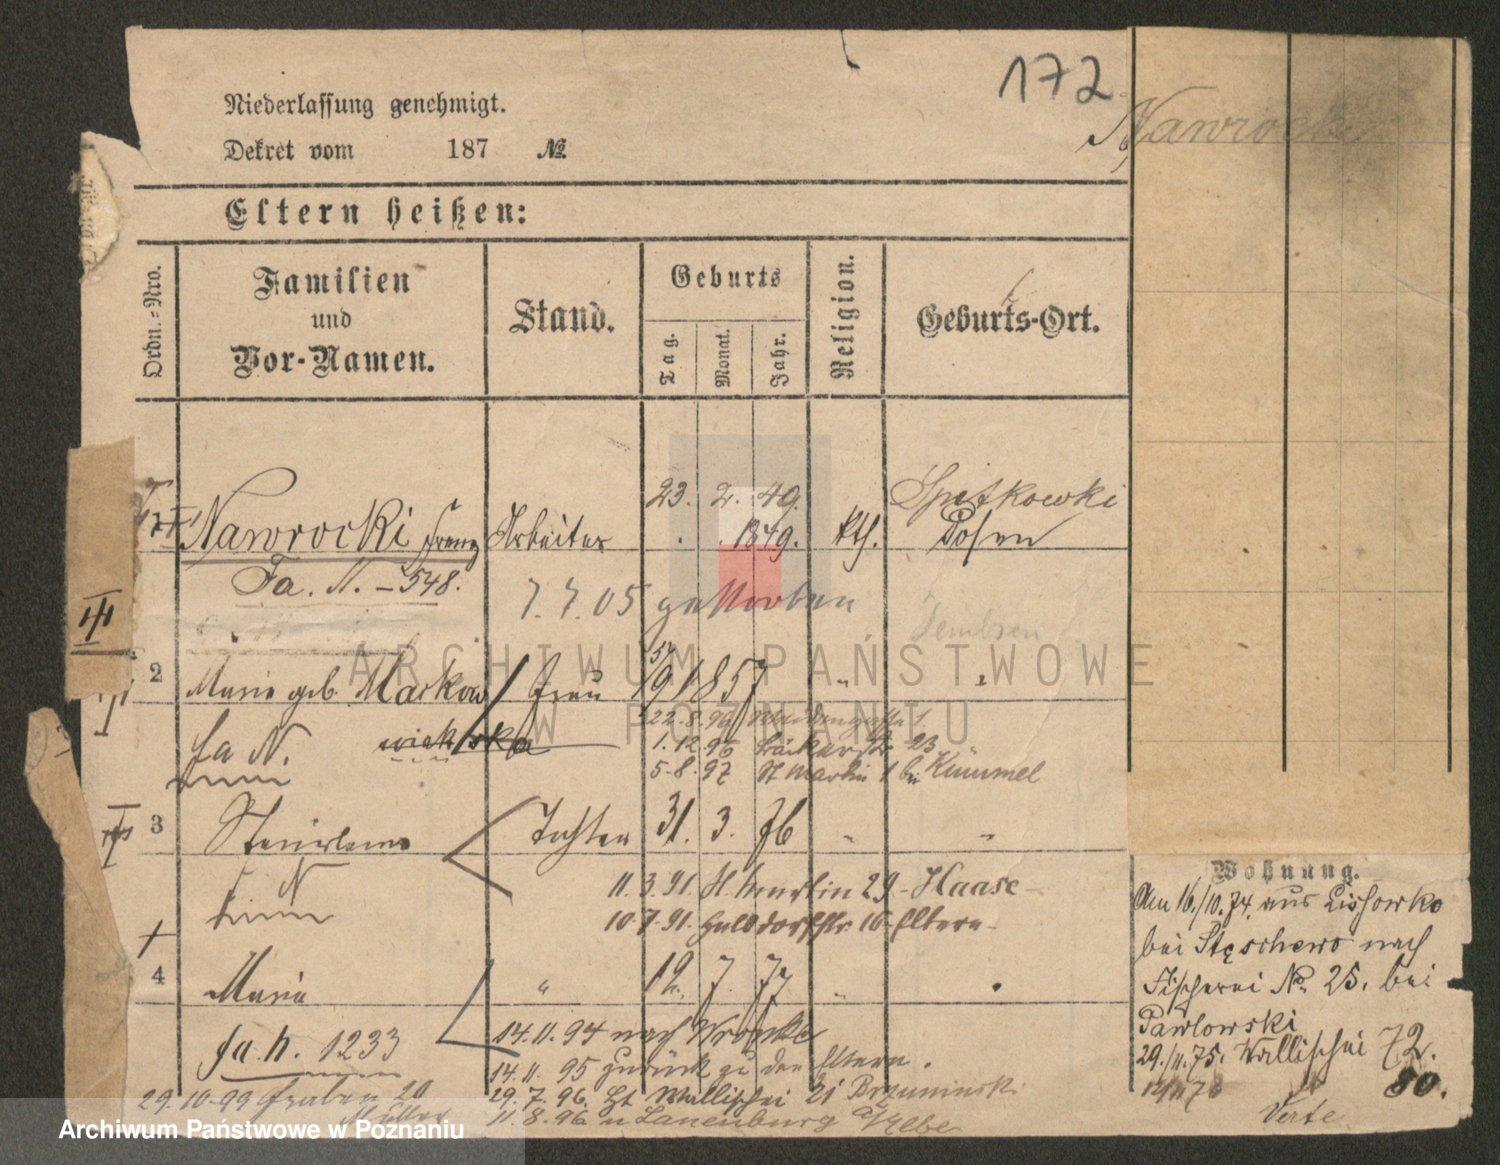 172
Niederlassung genehmigt.
Nawrocki
Dekret vom 187 №
Eltern heißen:
Ordn.-Nro.
Familien und Vor-Namen.
Stand.
Geburts
Tag. Monat. Jahr.
Religion.
Geburts-Ort.
23. 2. 49. Spitkowki
Nawrocki Franz Arbeiter 1849. kth. Posen
Fa. N. – 548.
7.7.05 gestorben
Dembsen
2 Maria geb. Markow Frau 19 1857 "
wiak ska
22.8.96
fa N. 1.12.96 Bäckerstr. 23
5.8.97 St Martin 1 bei Kümmel
3 Stanislawa Tochter 31. 3. 76 " "
N 11.3.91 St Martin 29 - Haase -
10.7.91. 16 Eltern -
4 Maria " 19. 7. 77 "
14.11.94 nach Wronke
fa. h. 1233
14.11.95 zurück zu den Eltern.
29.10.99 Graben 20 29.7.96 Wallischei 21
Müller 11.8.96 n Lauenburg a/Elbe
Wohnung.
Am 16./10.74. aus Lissowko
bei Stęschewo nach
Fischerei No. 25. bei
Pawlowski
29./11.75. Wallischei 72.
80.
Verte
ARCHIWUM PAŃSTWOWE
W POZNANIU
Archiwum Państwowe w Poznaniu